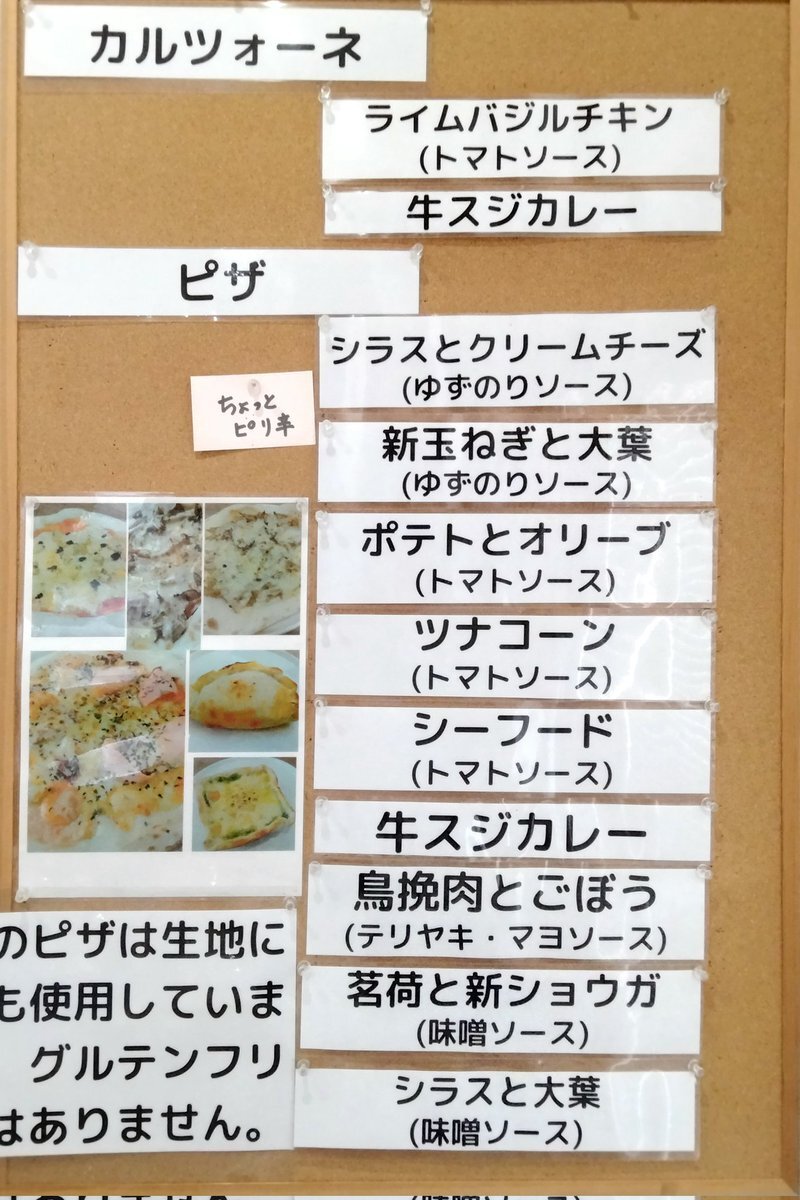 カルツォーネ
ライムバジルチキン
(トマトソース)
牛スジカレー
ピザ
シラスとクリームチーズ
(ゆずのりソース)
ちょっと
ピリ辛
新玉ねぎと大葉
(ゆずのりソース)
ポテトとオリーブ
(トマトソース)
ツナコーン
(トマトソース)
シーフード
(トマトソース)
牛スジカレー
鳥挽肉とごぼう
(テリヤキ・マヨソース)
茗荷と新ショウガ
(味噌ソース)
シラスと大葉
(味噌ソース)
のピザは生地に
も使用していま
グルテンフリ
はありません。